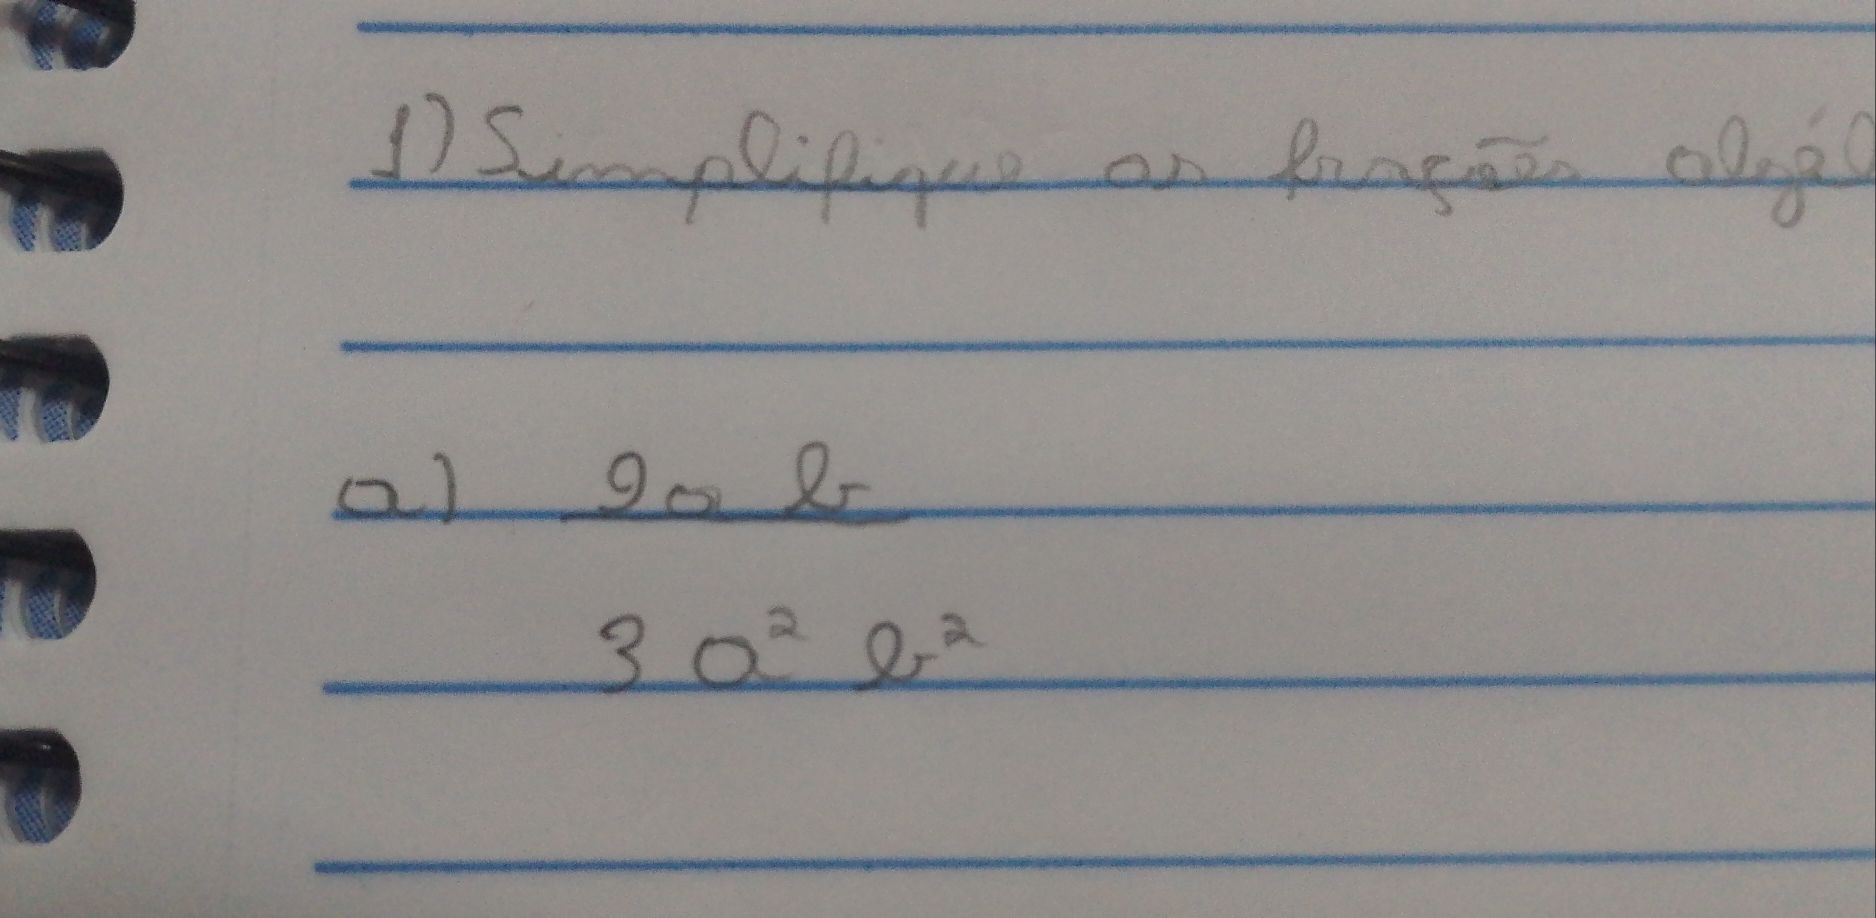 1) Simplifique as frações algé
a) 9a b
3 a² b²